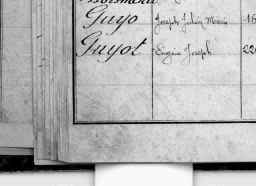 Guyo Joseph Julien Marie 16
Guyot Eugène Joseph 22